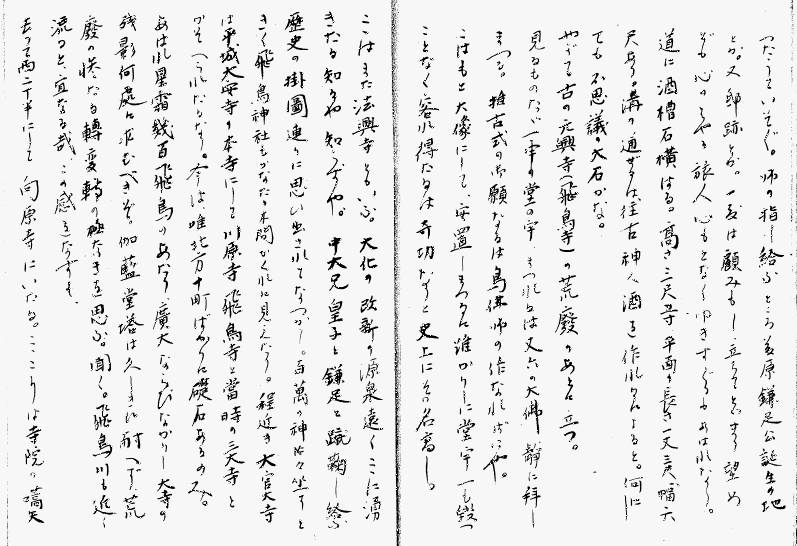 つたうていそぐ。師の指し給ふところ藤原鎌足公誕生の地
とか。又邸跡とか。一亥は顧みもし立ちてとゞまり望め
ども心のはやる旅人心もとなくゆきすぐるもあはれなり。
道に酒槽石横はる。高さ三尺五寸平面の長さ一丈三尺、幅六
尺あり。溝の通ずるは往古神人酒を作れりけんよと。何に
ても不思議の大石かな。
やがて古の元興寺(飛鳥寺)の荒廃のあとに立つ。
見るものたゞ一宇の堂の宇、まつれるは丈六の大佛、静に拝し
まつる。推古式の御顔なるは鳥佛師の作なればにや。
こはもと大像にして、安置しまつるに誰かりに堂宇一も毀つ
ことなく容れ得たるは奇功なりと史上にその名高し。
こはまた法興寺ともいふ。大化の改新の源泉遠くこゝに湧
きたる知るや知らずや。中大兄皇子と鎌足と蹴鞠し給ふ
歴史の掛圖連りに思い出されてなつかし。百萬の神々坐すと
きく飛鳥神社もかなたの木間がくれに見えたり。程近き大官大寺
は平城大安寺の本寺にして川原寺飛鳥寺と當時の三大寺と
かぞへられたるなり。今は唯北方十町ばかりに礎石あるのみ。
あはれ星霜幾百飛鳥のあたり廣大ならびなかりし大寺の
残影何處に求むべきぞ。伽藍堂塔は久しきに耐へず。荒
廢の惨たる轉変の極なきを思ふ。聞く。飛鳥川も近く
流ると宜なる哉。この感をなすも。
去つて西二丁半にして向原寺にいたる。こゝらは寺院の礎矢